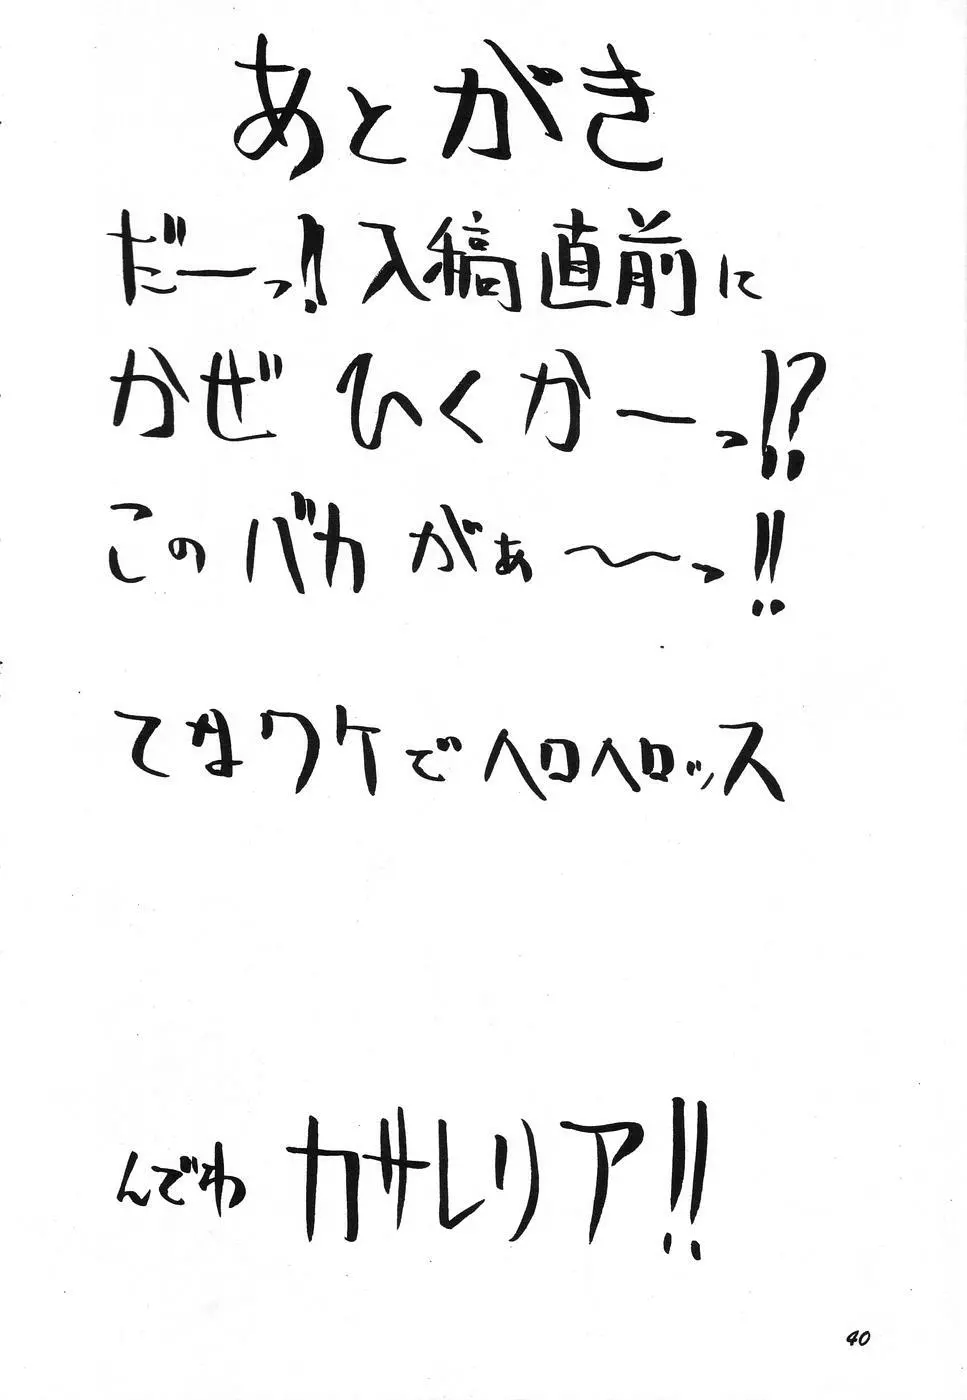 あとがき
だーっ!入稿直前に
かぜひくかーっ!?
このバカがぁ〜っ!!
てなワケでヘロヘロッス
んでわ カサレリア!!
40